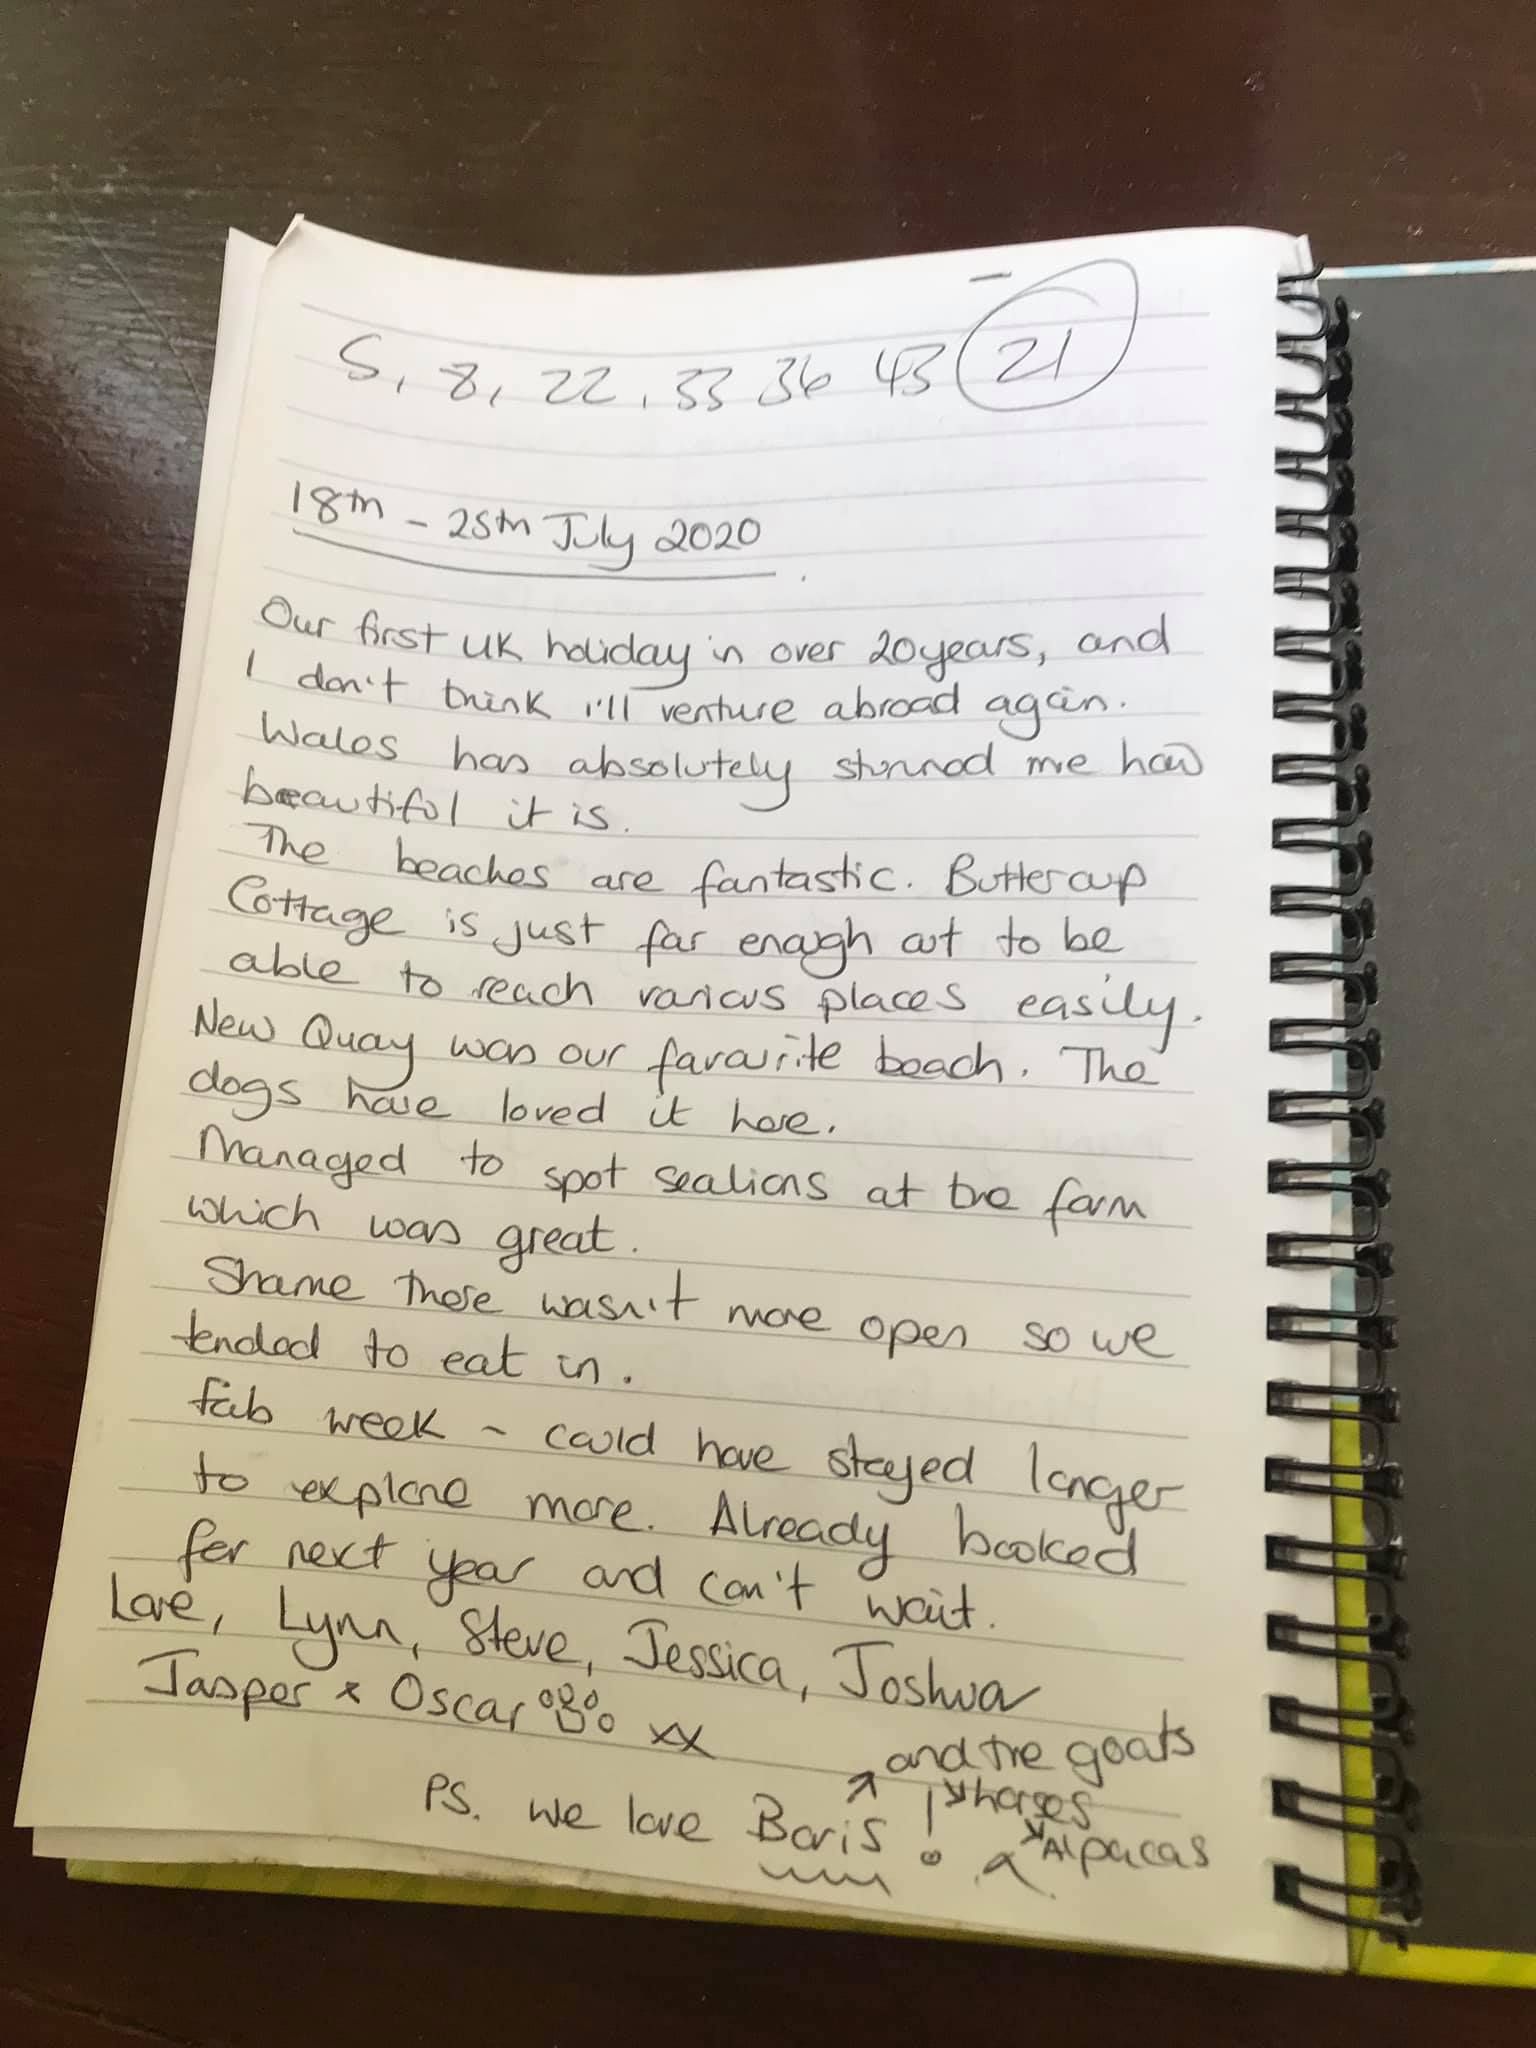 5, 8, 22, 33 36 43 21
18th - 25th July 2020
Our first UK holiday in over 20 years, and
I don't think i'll venture abroad again.
Wales has absolutely stunned me how
beautiful it is.
The beaches are fantastic. Buttercup
Cottage is just far enough out to be
able to reach various places easily.
New Quay was our favourite beach. The
dogs have loved it here.
Managed to spot sealions at the farm
which was great.
Shame there wasn't more open so we
tended to eat in.
Fab week - could have stayed longer
to explore more. Already booked
for next year and can't wait.
Love, Lynn, Steve, Jessica, Joshua
Jasper & Oscar xx
and the goats
horses
PS. we love Boris!
Alpacas